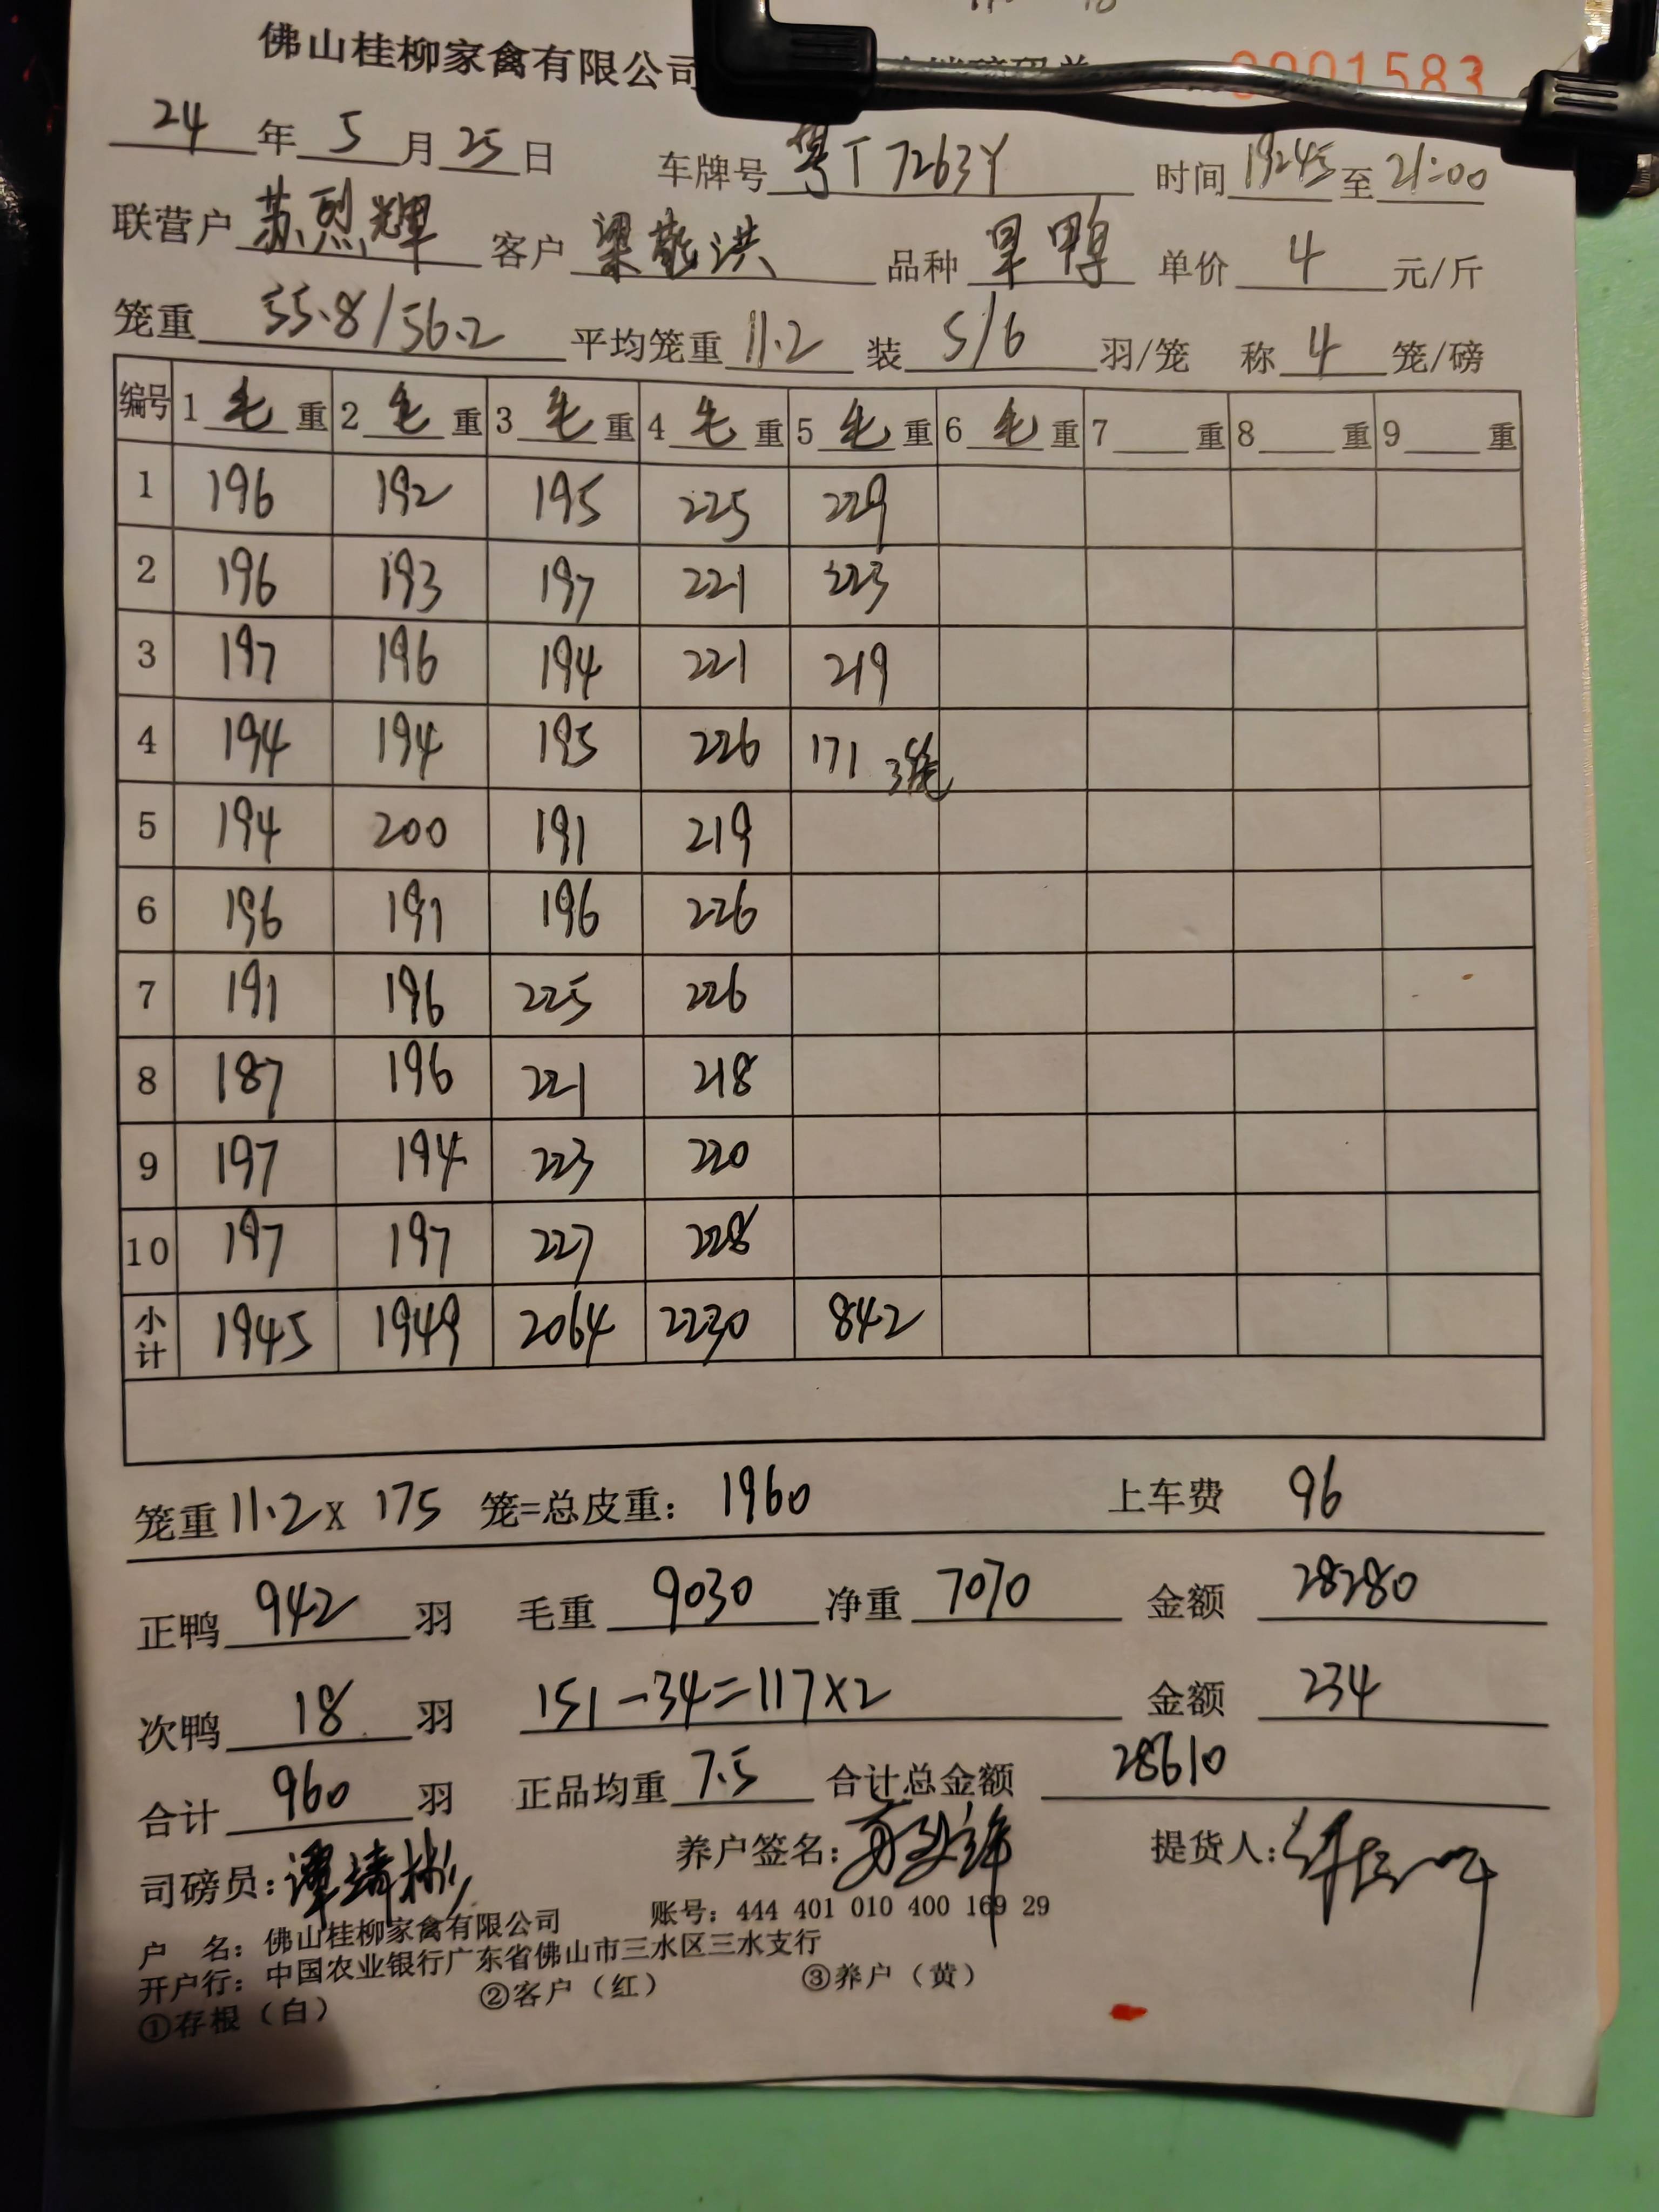 佛山桂柳家禽有限公司 0001583
24年5月25日 车牌号 粤T7263Y 时间 19:45至21:00
联营户 苏烈辉 客户 梁 洪 品种 旱鸭 单价 4 元/斤
笼重 55.8/56.2 平均笼重 11.2 装 5/6 羽/笼 称 4 笼/磅
编号 1毛重 2毛重 3毛重 4毛重 5毛重 6毛重 7 重 8 重 9 重
1 196 192 195 225 229
2 196 193 197 221 223
3 197 196 194 221 219
4 194 194 195 226 171 3笼
5 194 200 191 219
6 196 191 196 226
7 191 196 225 226
8 187 196 221 218
9 197 194 223 220
10 197 197 227 228
小计 1945 1949 2064 2230 842
笼重 11.2 x 175 笼=总皮重: 1960 上车费 96
正鸭 942 羽 毛重 9030 净重 7070 金额 28280
次鸭 18 羽 151-34=117x2 金额 234
合计 960 羽 正品均重 7.5 合计总金额 28610
司磅员: 谭靖彬 养户签名: 提货人:
户 名: 佛山桂柳家禽有限公司 账号: 444 401 010 400 169 29
开户行: 中国农业银行广东省佛山市三水区三水支行
①存根（白） ②客户（红） ③养户（黄）